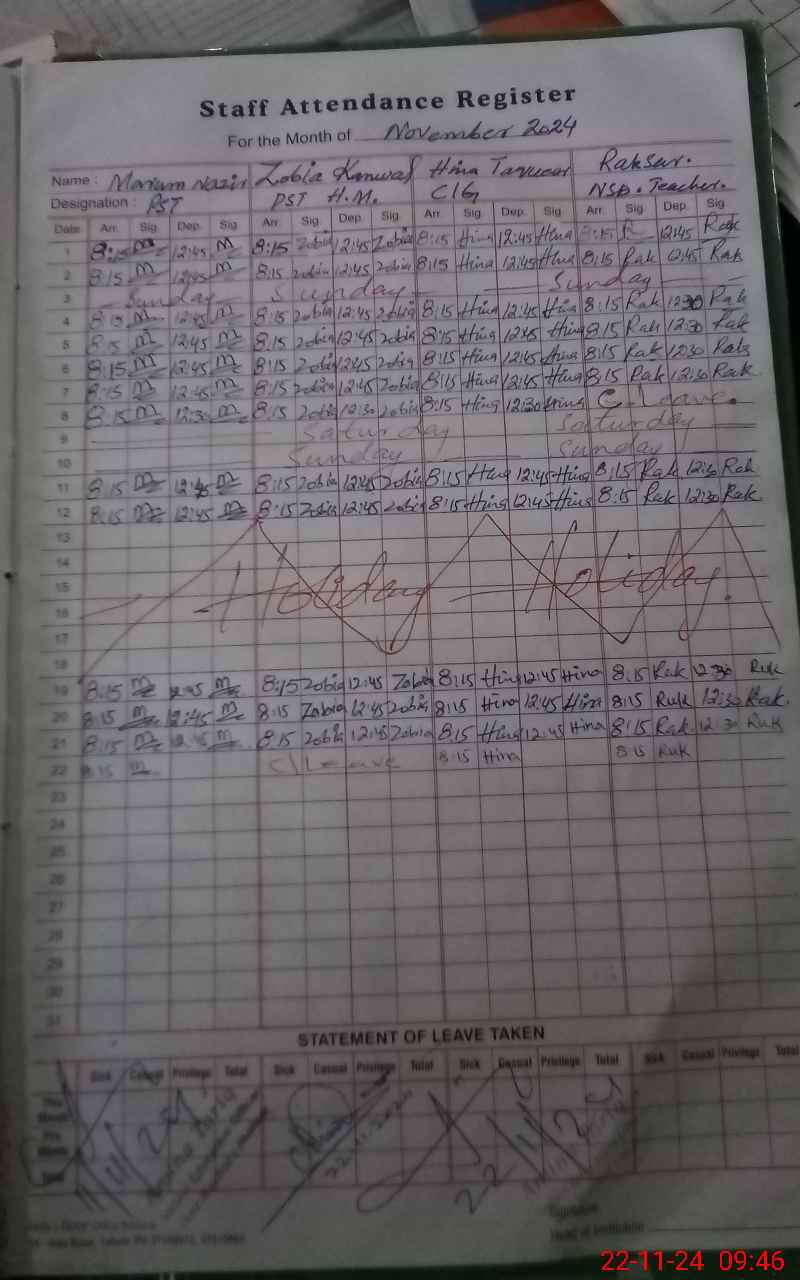 Staff Attendance Register
For the Month of November 2024
Name : Mariam Nazir Zobia Kanwal Hina Tanveer Raksar.
Designation : PST PST H.M. C/G NSB. Teacher.
Date Arr. Sig. Dep. Sig. Arr. Sig. Dep. Sig. Arr. Sig. Dep. Sig. Arr. Sig. Dep. Sig.
1 8:15 m 12:45 m 8:15 Zobia 12:45 Zobia 8:15 Hina 12:45 Hina 8:15 R 12:45 Rak
2 8:15 m 12:45 m 8:15 Zobia 12:45 Zobia 8:15 Hina 12:45 Hina 8:15 Rak 12:45 Rak
3 Sunday Sunday Sunday
4 8:15 m 12:45 m 8:15 Zobia 12:45 Zobia 8:15 Hina 12:45 Hina 8:15 Rak 12:30 Rak
5 8:15 m 12:45 m 8:15 Zobia 12:45 Zobia 8:15 Hina 12:45 Hina 8:15 Rak 12:30 Rak
6 8:15 m 12:45 m 8:15 Zobia 12:45 Zobia 8:15 Hina 12:45 Hina 8:15 Rak 12:30 Rak
7 8:15 m 12:45 m 8:15 Zobia 12:45 Zobia 8:15 Hina 12:45 Hina 8:15 Rak 12:30 Rak
8 8:15 m 12:30 m 8:15 Zobia 12:30 Zobia 8:15 Hina 12:30 Hina C.leave.
9 Saturday Saturday
10 Sunday Sunday
11 8:15 m 12:45 m 8:15 Zobia 12:45 Zobia 8:15 Hina 12:45 Hina 8:15 Rak 12:30 Rak
12 8:15 m 12:45 m 8:15 Zobia 12:45 Zobia 8:15 Hina 12:45 Hina 8:15 Rak 12:30 Rak
13
14
15 Holiday Holiday.
16
17
18
19 8:15 m 12:45 m 8:15 Zobia 12:45 Zobia 8:15 Hina 12:45 Hina 8:15 Rak 12:30 Ruk
20 8:15 m 12:45 m 8:15 Zobia 12:45 Zobia 8:15 Hina 12:45 Hina 8:15 Ruk 12:30 Rak.
21 8:15 m 12:45 m 8:15 Zobia 12:45 Zobia 8:15 Hina 12:45 Hina 8:15 Rak 12:30 Ruk
22 8:15 m C/Leave 8:15 Hina 8:15 Ruk
23
24
25
26
27
28
29
30
31
STATEMENT OF LEAVE TAKEN
Sick Casual Privilege Total Sick Casual Privilege Total Sick Casual Privilege Total Sick Casual Privilege Total
22-11-2024
22/11/24
Signature
Head of Institution
22-11-24 09:46